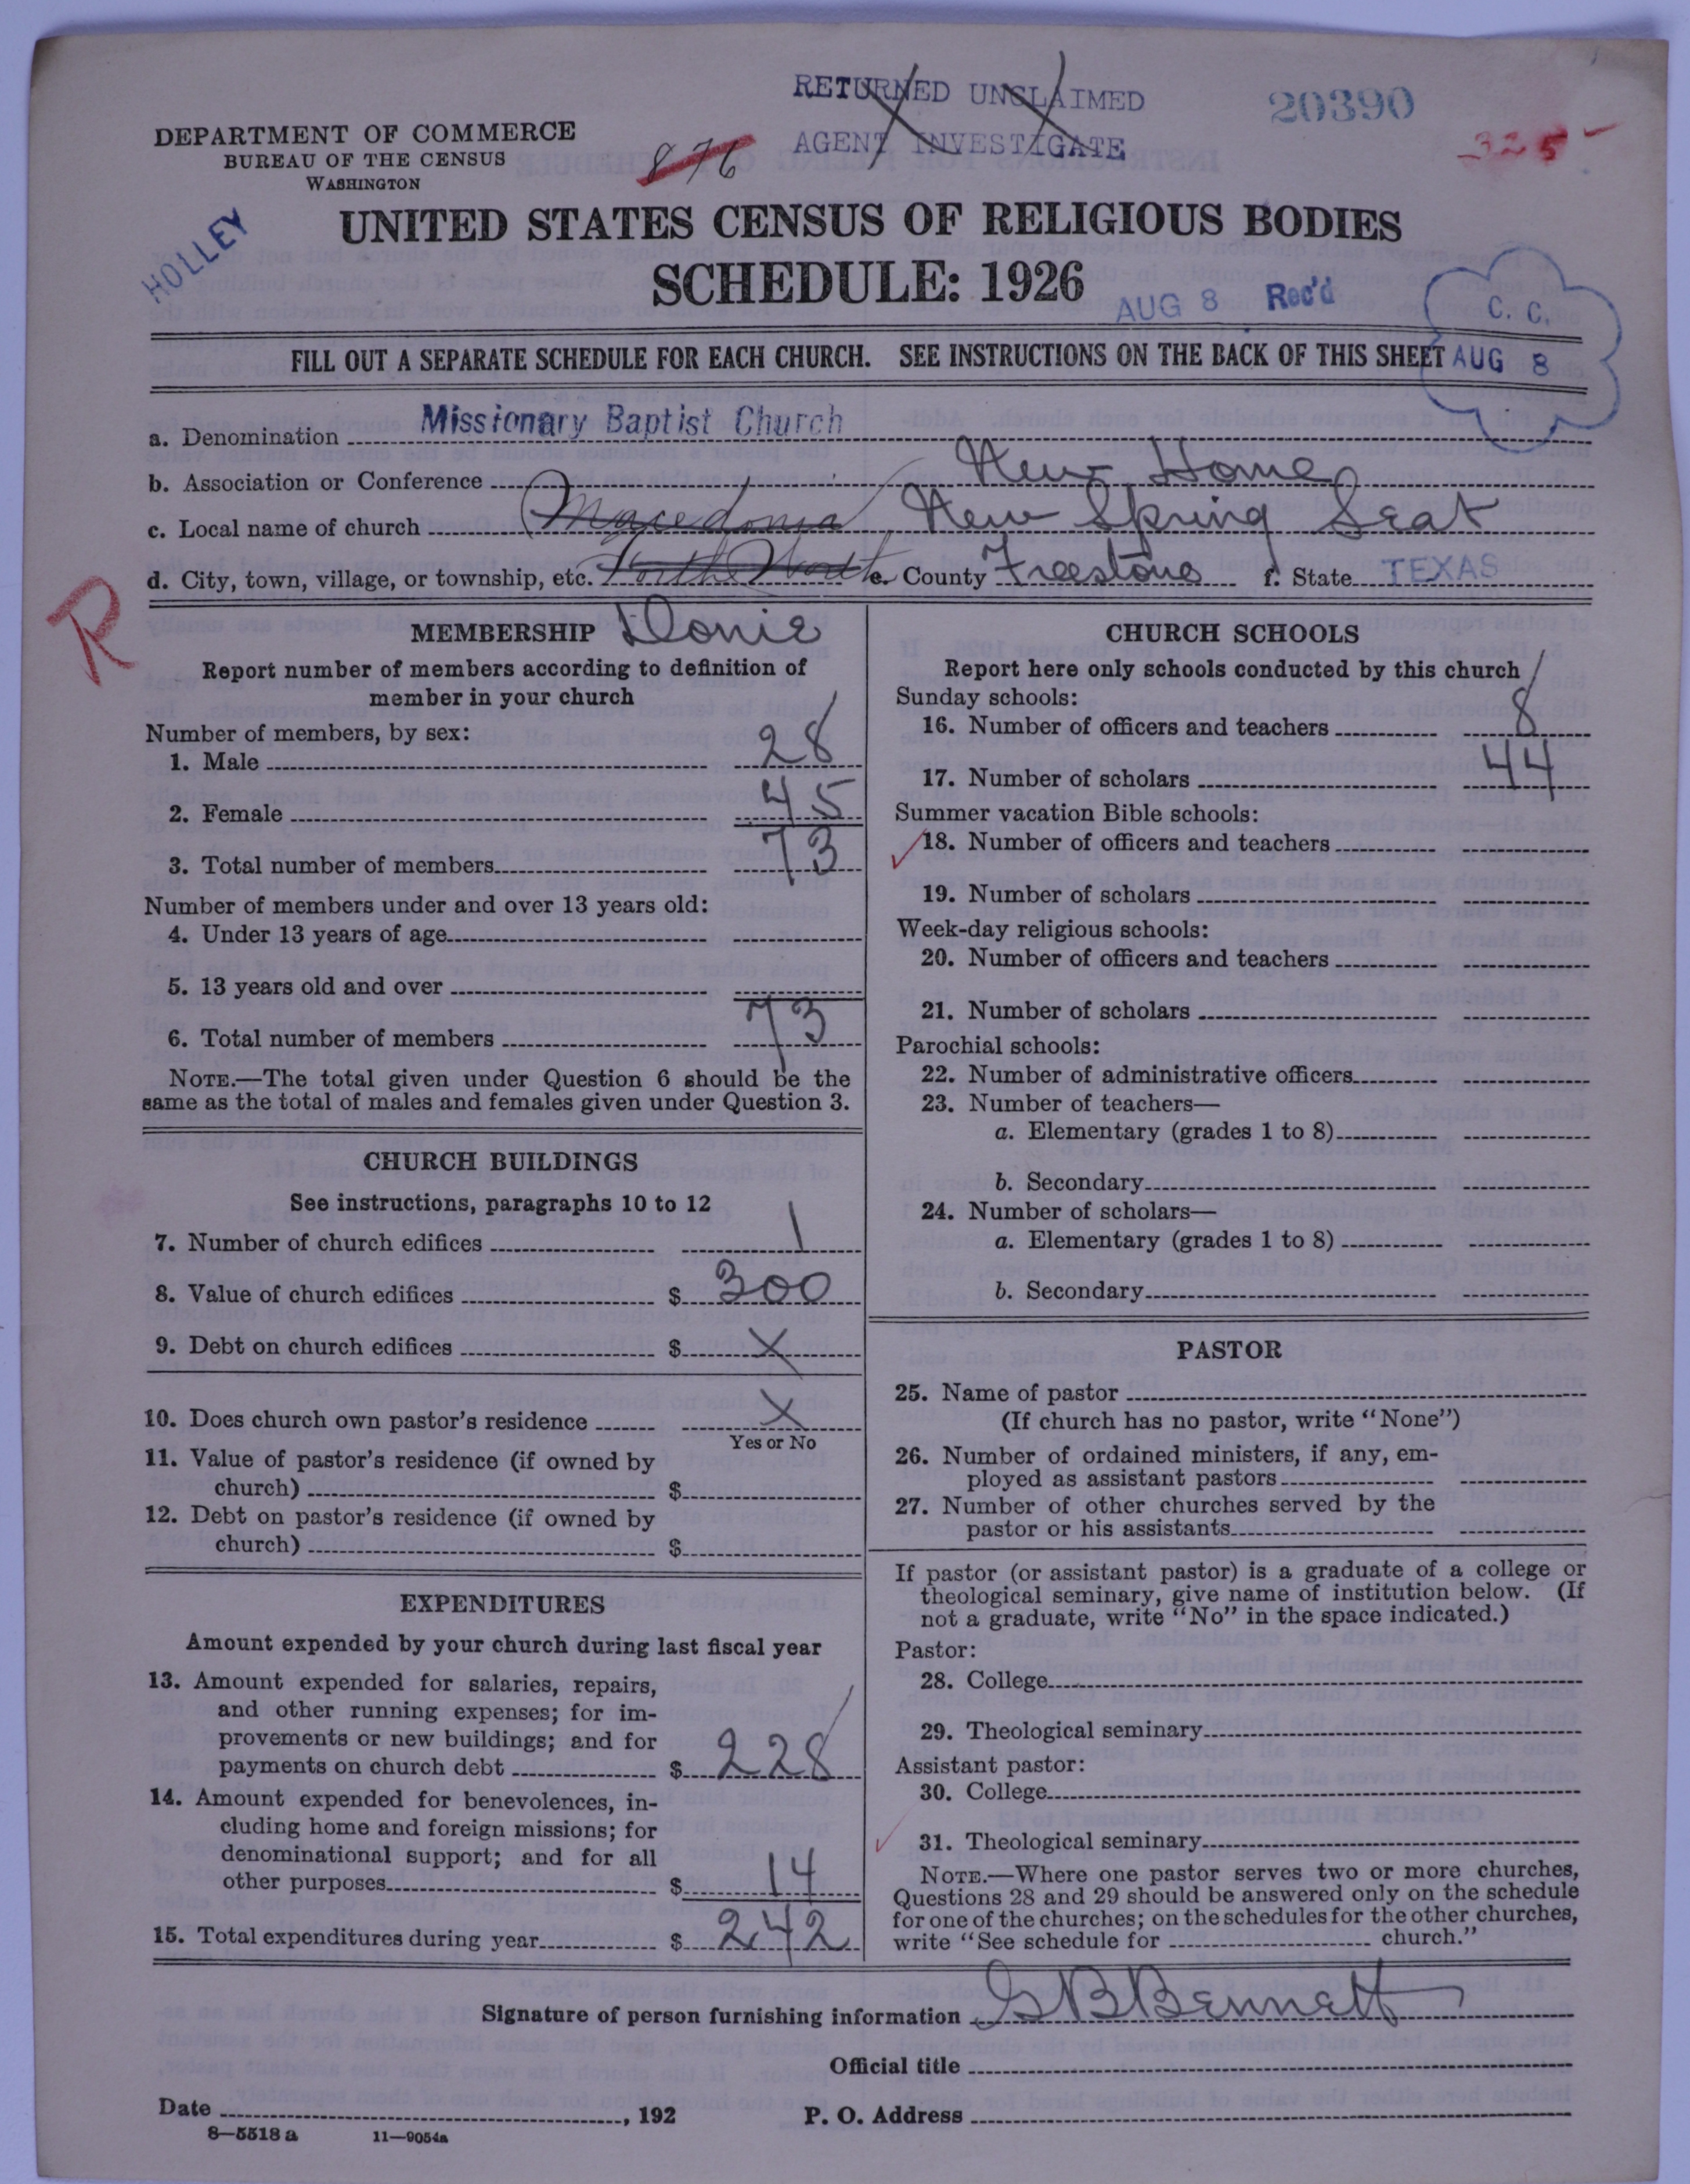 RETURNED UNCLAIMED
AGENT INVESTIGATE
20390
325
876
DEPARTMENT OF COMMERCE
BUREAU OF THE CENSUS
WASHINGTON
HOLLEY
UNITED STATES CENSUS OF RELIGIOUS BODIES
SCHEDULE: 1926
AUG 8 Rec'd
C. C.
AUG 8
FILL OUT A SEPARATE SCHEDULE FOR EACH CHURCH. SEE INSTRUCTIONS ON THE BACK OF THIS SHEET
a. Denomination Missionary Baptist Church
b. Association or Conference New Home
c. Local name of church Macedonia New Spring Seat
d. City, town, village, or township, etc. Forth Worth e. County Freestone f. State TEXAS
R
Donie
MEMBERSHIP
Report number of members according to definition of
member in your church
Number of members, by sex:
1. Male 28
2. Female 45
3. Total number of members 73
Number of members under and over 13 years old:
4. Under 13 years of age
5. 13 years old and over
6. Total number of members 73
NOTE.—The total given under Question 6 should be the
same as the total of males and females given under Question 3.
CHURCH BUILDINGS
See instructions, paragraphs 10 to 12
7. Number of church edifices 1
8. Value of church edifices $ 300
9. Debt on church edifices $ X
10. Does church own pastor's residence X
Yes or No
11. Value of pastor's residence (if owned by
church) $
12. Debt on pastor's residence (if owned by
church) $
EXPENDITURES
Amount expended by your church during last fiscal year
13. Amount expended for salaries, repairs,
and other running expenses; for im-
provements or new buildings; and for
payments on church debt $ 228
14. Amount expended for benevolences, in-
cluding home and foreign missions; for
denominational support; and for all
other purposes $ 14
15. Total expenditures during year $ 242
CHURCH SCHOOLS
Report here only schools conducted by this church
Sunday schools:
16. Number of officers and teachers 8
17. Number of scholars 44
Summer vacation Bible schools:
18. Number of officers and teachers
19. Number of scholars
Week-day religious schools:
20. Number of officers and teachers
21. Number of scholars
Parochial schools:
22. Number of administrative officers
23. Number of teachers—
a. Elementary (grades 1 to 8)
b. Secondary
24. Number of scholars—
a. Elementary (grades 1 to 8)
b. Secondary
PASTOR
25. Name of pastor
(If church has no pastor, write "None")
26. Number of ordained ministers, if any, em-
ployed as assistant pastors
27. Number of other churches served by the
pastor or his assistants
If pastor (or assistant pastor) is a graduate of a college or
theological seminary, give name of institution below. (If
not a graduate, write "No" in the space indicated.)
Pastor:
28. College
29. Theological seminary
Assistant pastor:
30. College
31. Theological seminary
NOTE.—Where one pastor serves two or more churches,
Questions 28 and 29 should be answered only on the schedule
for one of the churches; on the schedules for the other churches,
write "See schedule for church."
Signature of person furnishing information G B Bennett
Official title
Date , 192 P. O. Address
8—5518 a 11—9054a